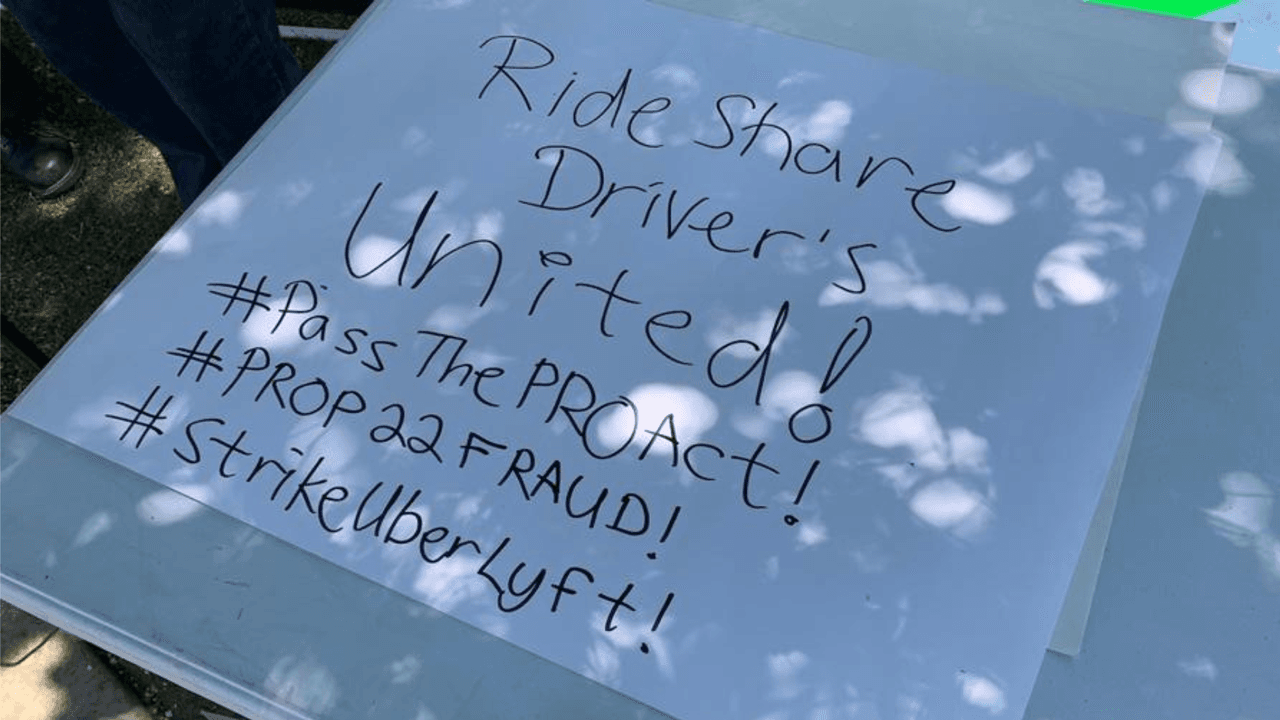 Ride Share
Driver's
United!
#Pass The PROAct!
#PROP 22 FRAUD!
#StrikeUberLyft!